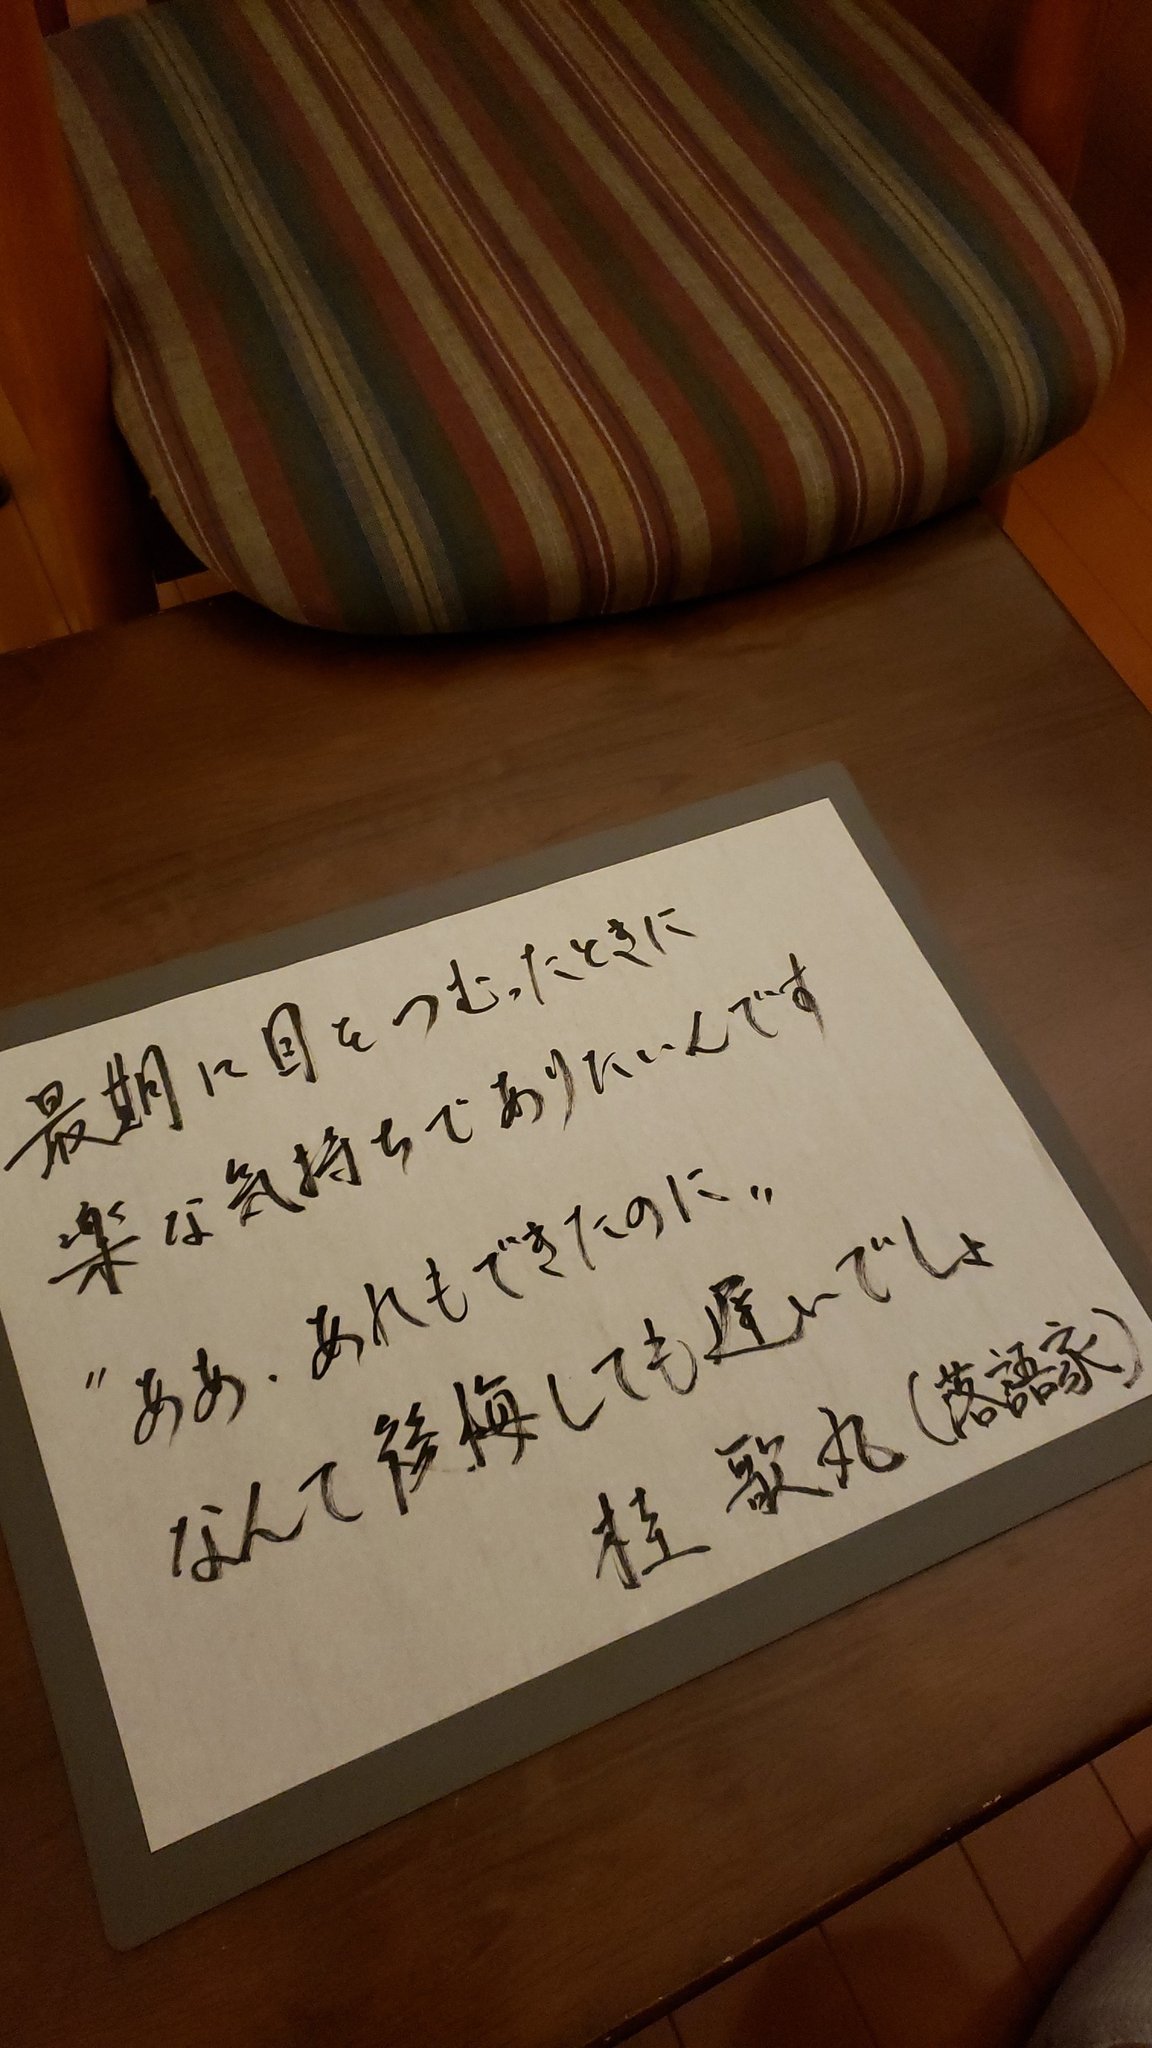 最期に目をつむったときに
楽な気持ちでありたいんです
"ああ、あれもできたのに"
なんて後悔しても遅いでしょ
桂 歌丸(落語家)